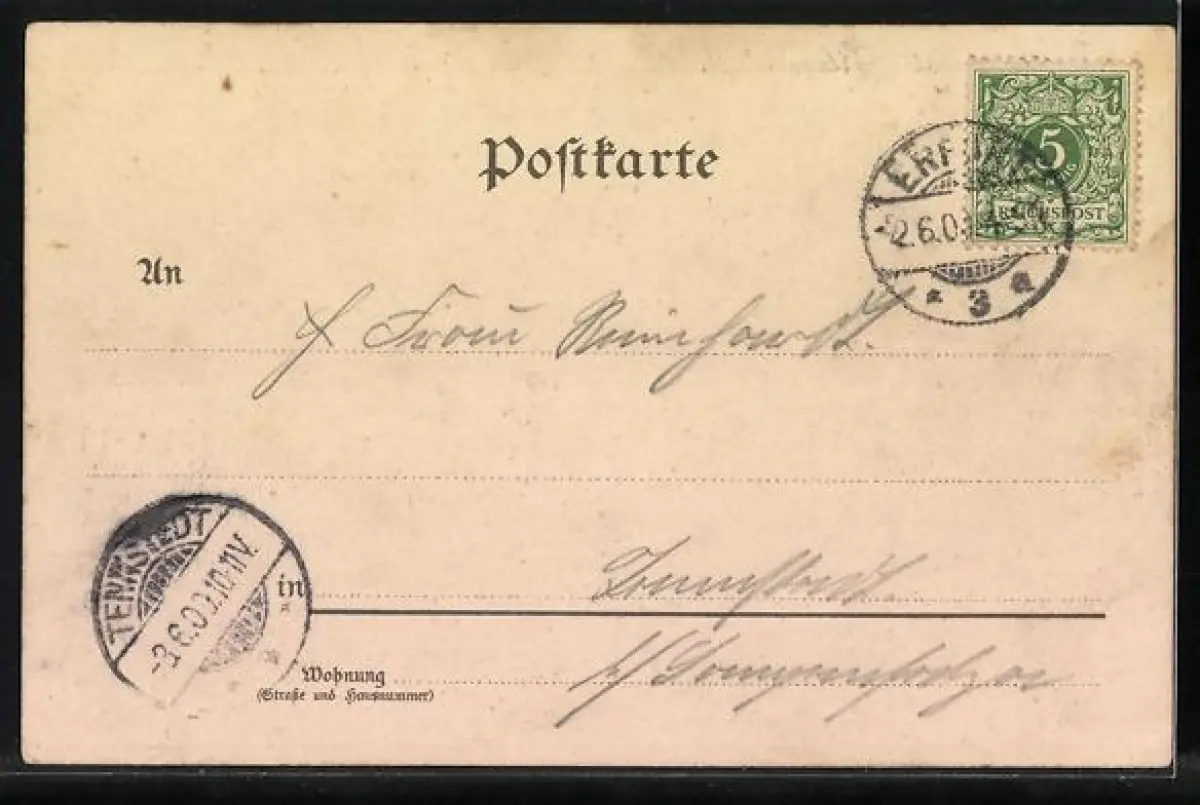 Postkarte
5
REICHSPOST
ERFURT
2.6.0
3 a
An
Frau Reinhardt.
TENNSTEDT
3.6.0 10-11V.
in Tennstedt.
b/ Langensalza
Wohnung
(Straße und Hausnummer)